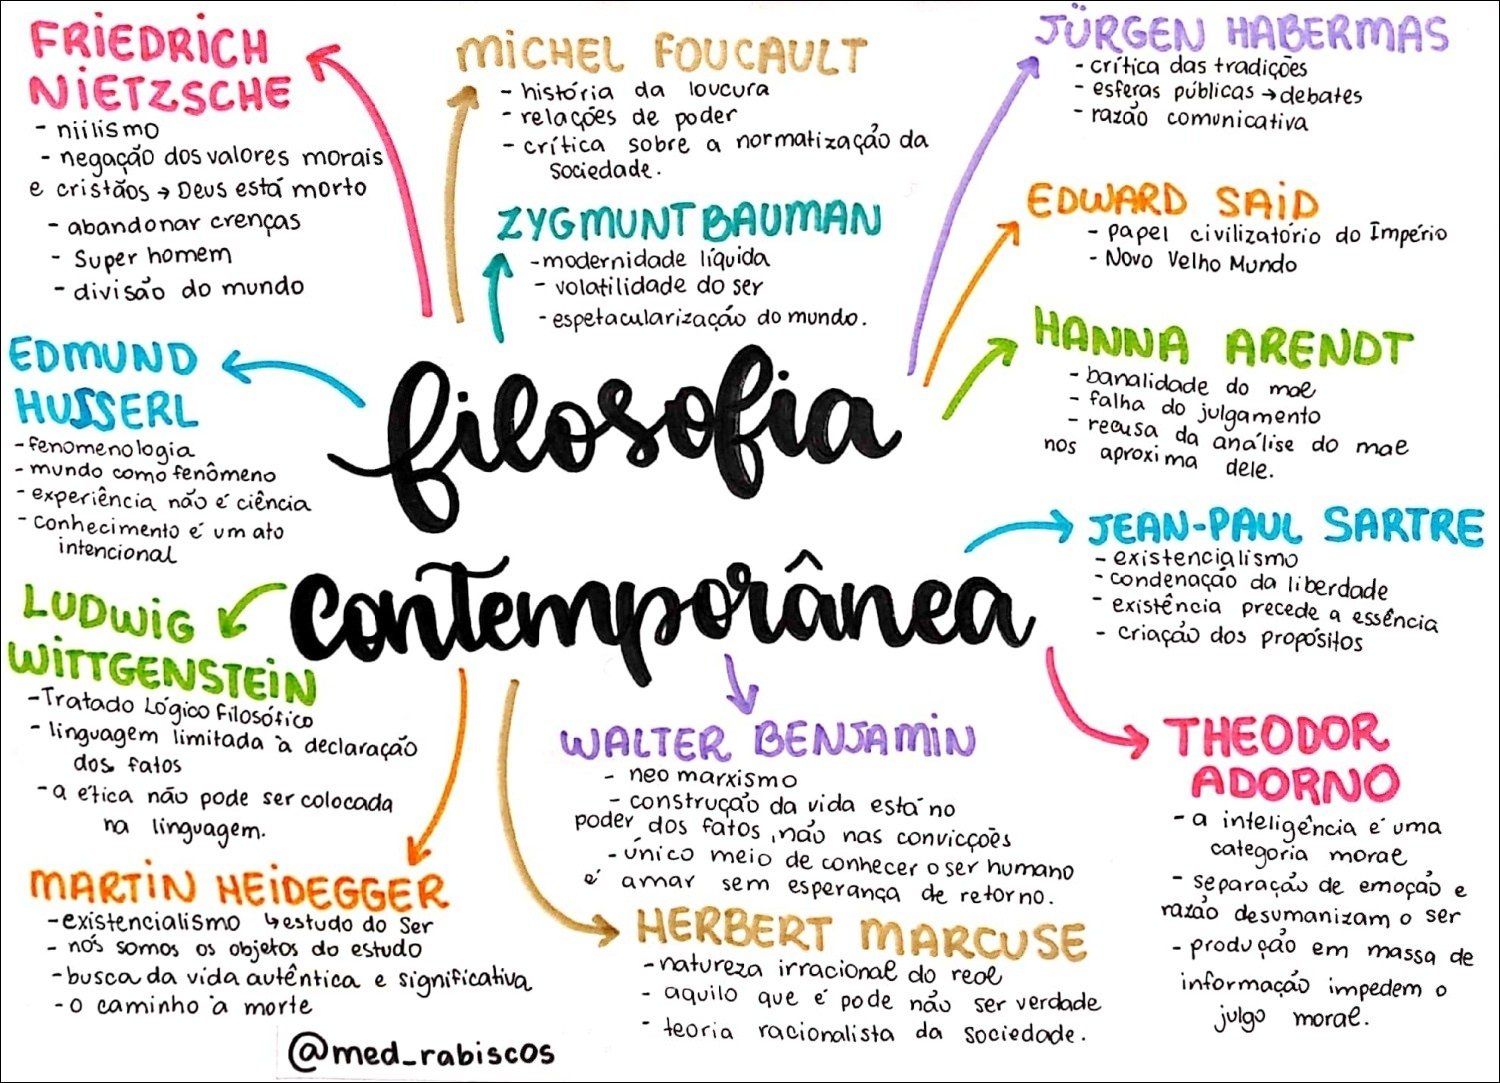 FRIEDRICH
NIETZSCHE
- niilismo
- negação dos valores morais
e cristãos → Deus está morto
- abandonar crenças
- Super homem
- divisão do mundo
MICHEL FOUCAULT
- história da loucura
- relações de poder
- crítica sobre a normatização da
sociedade.
ZYGMUNT BAUMAN
- modernidade líquida
- volatilidade do ser
- espetacularização do mundo.
JÜRGEN HABERMAS
- crítica das tradições
- esferas públicas → debates
- razão comunicativa
EDWARD SAID
- papel civilizatório do Império
- Novo Velho Mundo
HANNA ARENDT
- banalidade do mal
- falha do julgamento
- recusa da análise do mal
nos aproxima dele.
EDMUND
HUSSERL
- fenomenologia
- mundo como fenômeno
- experiência não é ciência
- conhecimento é um ato
intencional
filosofia
contemporânea
JEAN-PAUL SARTRE
- existencialismo
- condenação da liberdade
- existência precede a essência
- criação dos propósitos
LUDWIG
WITTGENSTEIN
- Tratado Lógico Filosófico
- linguagem limitada à declaração
dos fatos
- a ética não pode ser colocada
na linguagem.
WALTER BENJAMIN
- neo marxismo
- construção da vida está no
poder dos fatos, não nas convicções
- único meio de conhecer o ser humano
é amar sem esperança de retorno.
THEODOR
ADORNO
- a inteligência é uma
categoria moral
- separação de emoção e
razão desumanizam o ser
- produção em massa de
informação impedem o
julgo moral.
MARTIN HEIDEGGER
- existencialismo ↳ estudo do Ser
- nós somos os objetos do estudo
- busca da vida autêntica e significativa
- o caminho à morte
HERBERT MARCUSE
- natureza irracional do real
- aquilo que é pode não ser verdade
- teoria racionalista da sociedade.
@med_rabiscos